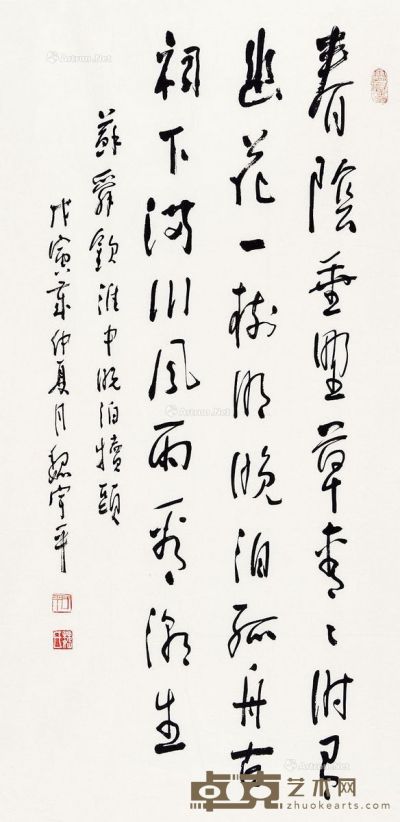 春陰垂野草青々时有
幽花一樹明晚泊孤舟古
祠下满川風雨看潮生
蘇舜欽淮中晚泊犢頭
戊寅年仲夏月魏宇平
卓克艺术网
zhuokearts.com